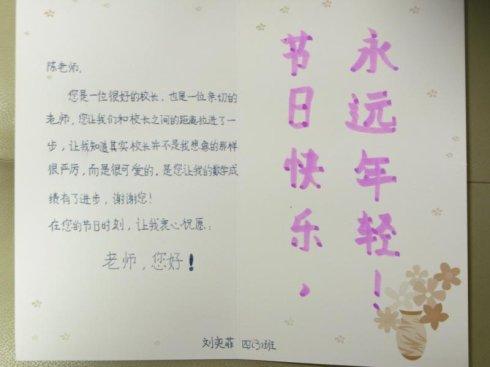 陈老师，
您是一位很好的校长，也是一位亲切的
老师，您让我们和校长之间的距离拉进了一
步，让我知道其实校长并不是我想象的那样
很严厉，而是很可爱的，是您让我的数学成
绩有了进步，谢谢您！
在您的节日时刻，让我衷心祝愿：
老师，您好！
节日快乐，
永远年轻！
刘奕菲 四(3)班